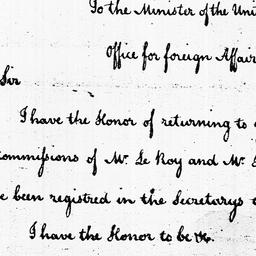 To the Minister of the Uni
Office for foreign Affair
Sir
I have the Honor of returning to
ommissions of Mr. Le Roy and Mr.
e been registred in the Secretarys
I have the Honor to be &c.